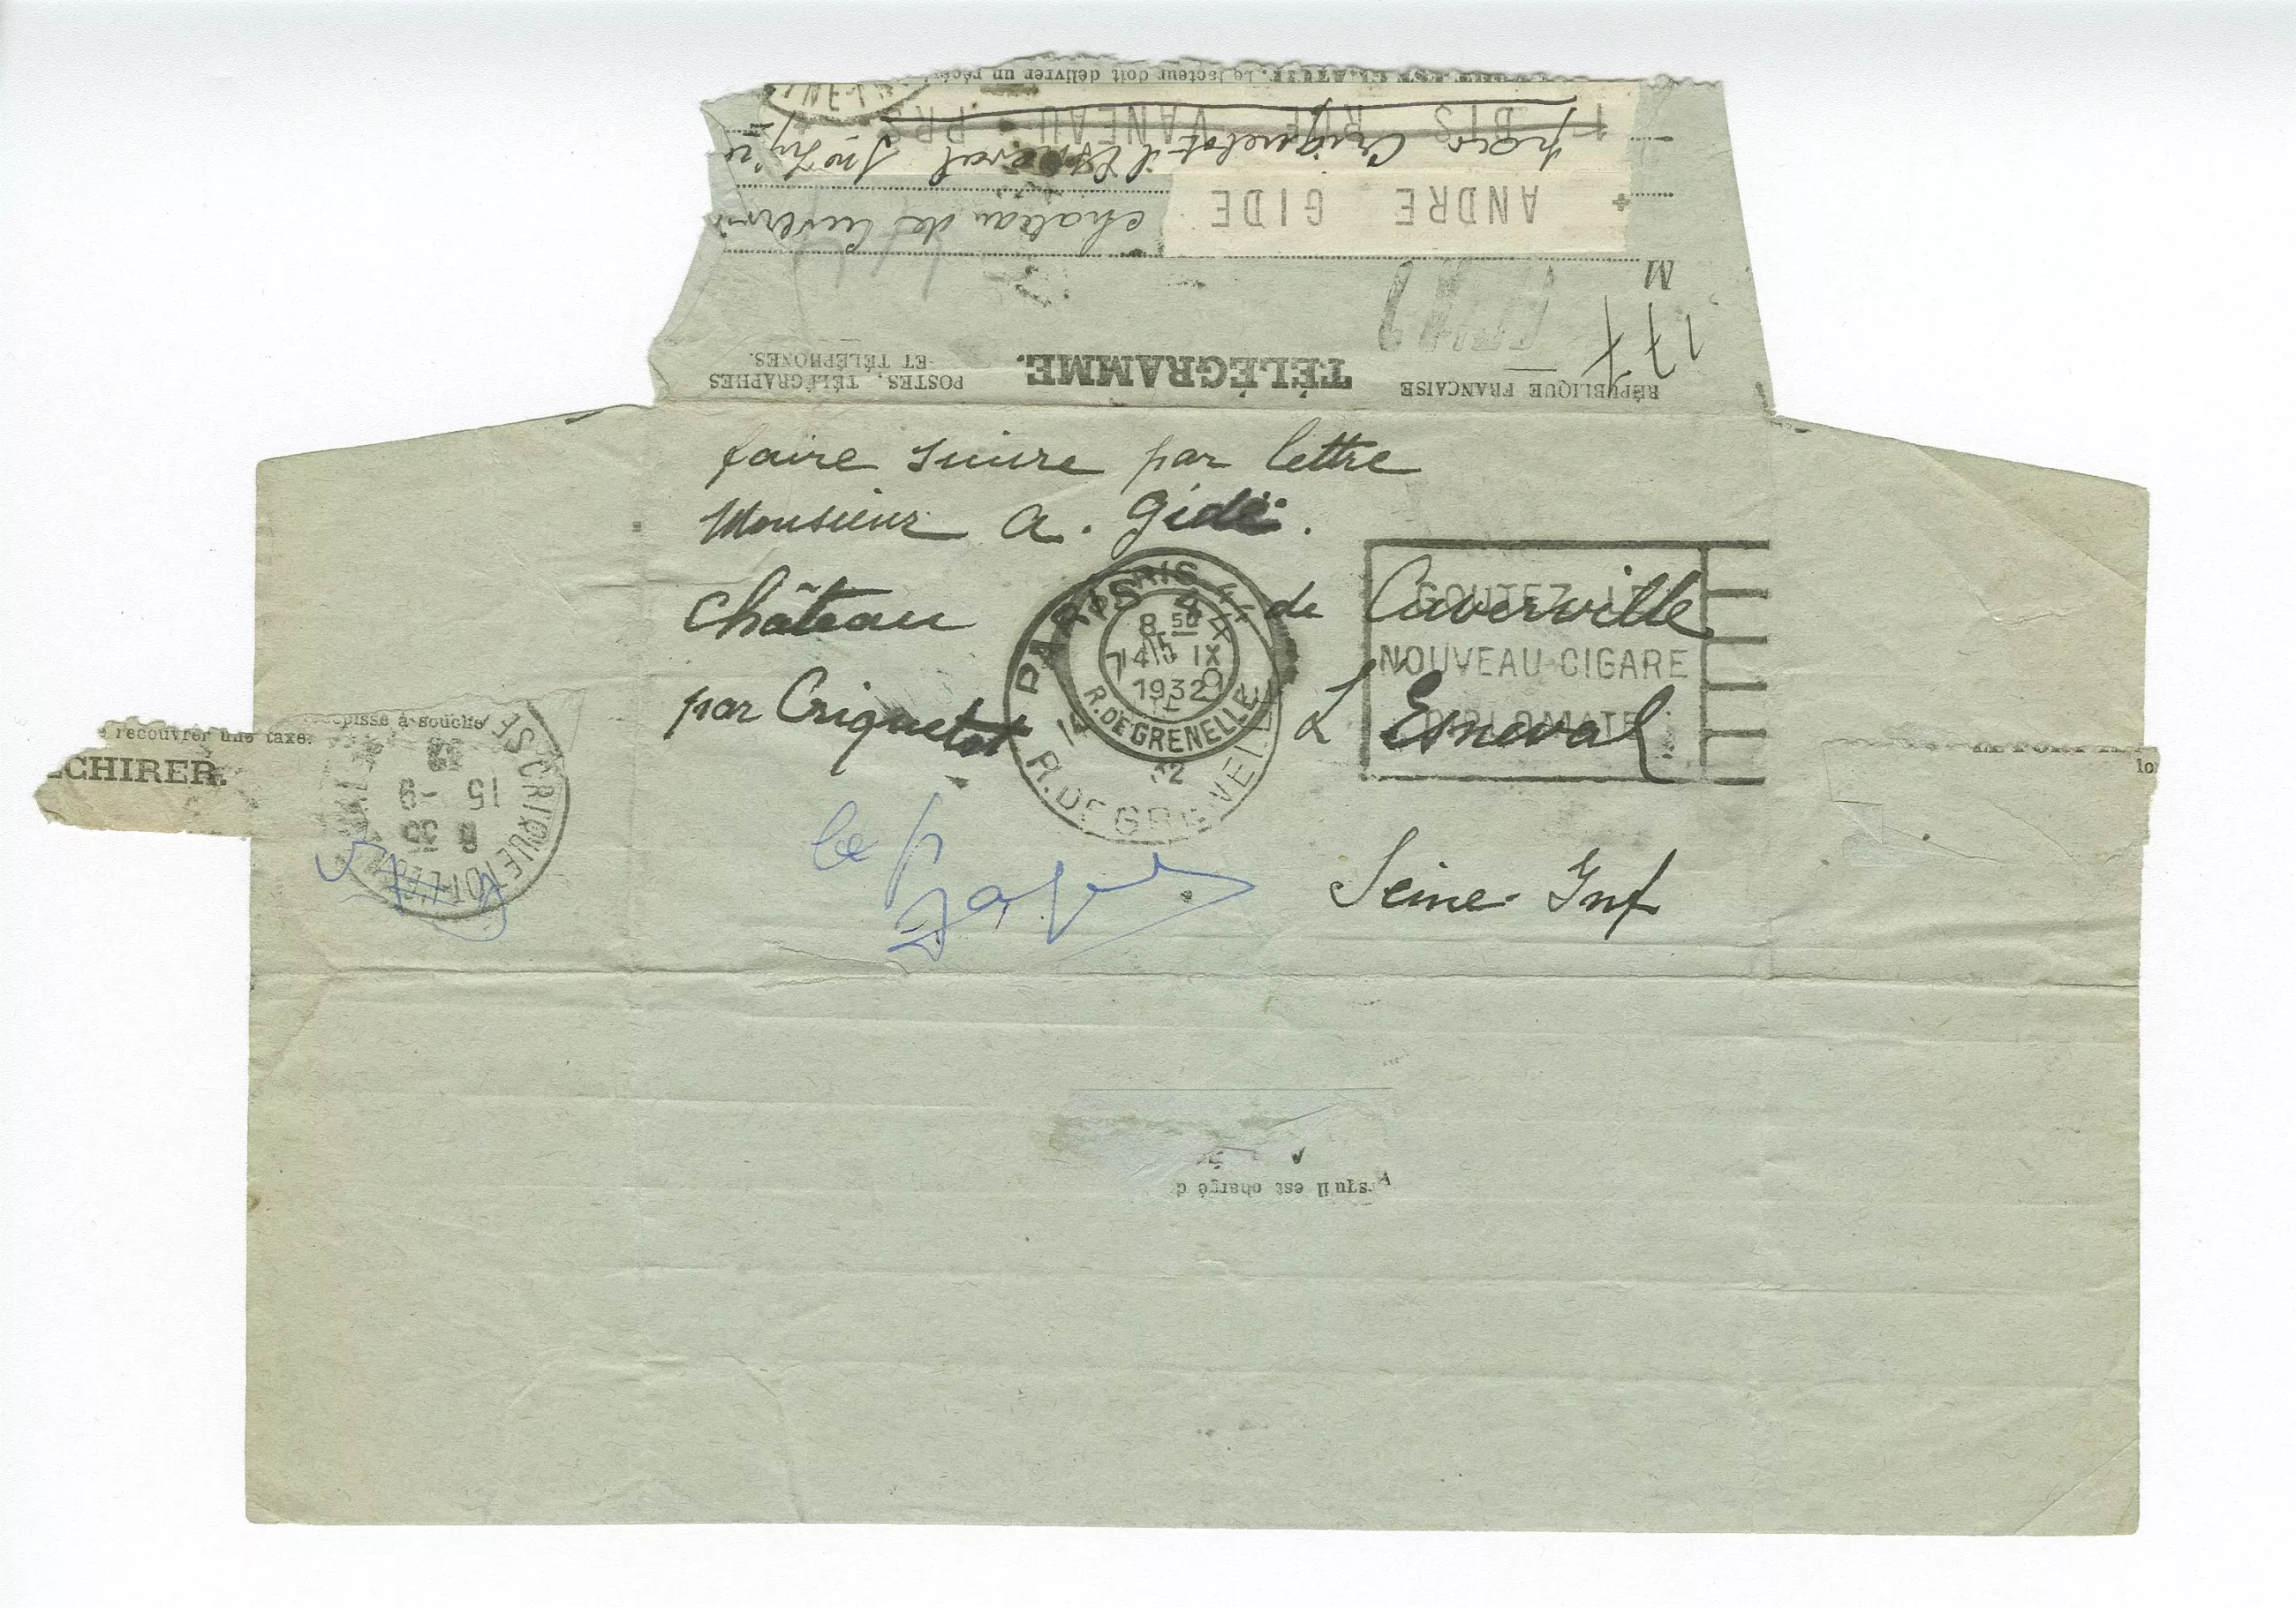 facteur doit délivrer un récé
1 BIS RUE VANEAU PRS
par Criquetot l'Esneval
ANDRE GIDE
chateau de Cuverv
M
177
RÉPUBLIQUE FRANÇAISE
TÉLÉGRAMME.
POSTES, TÉLÉGRAPHES
ET TÉLÉPHONES.
faire suivre par lettre
Monsieur A. Gide.
Château de Cuverville
par Criquetot L'Esneval
Seine Inf
PARIS
8 50
15 IX
1932
R. DE GRENELLE
PARIS
R. DE GRENELLE
GOUTEZ LE
NOUVEAU CIGARE
DIPLOMATE
récépissé à souche
recouvrer une taxe.
CHIRER.
CRIQUETOT-L'ESNEVAL
8 35
15 -9
32
rsqu'il est chargé d